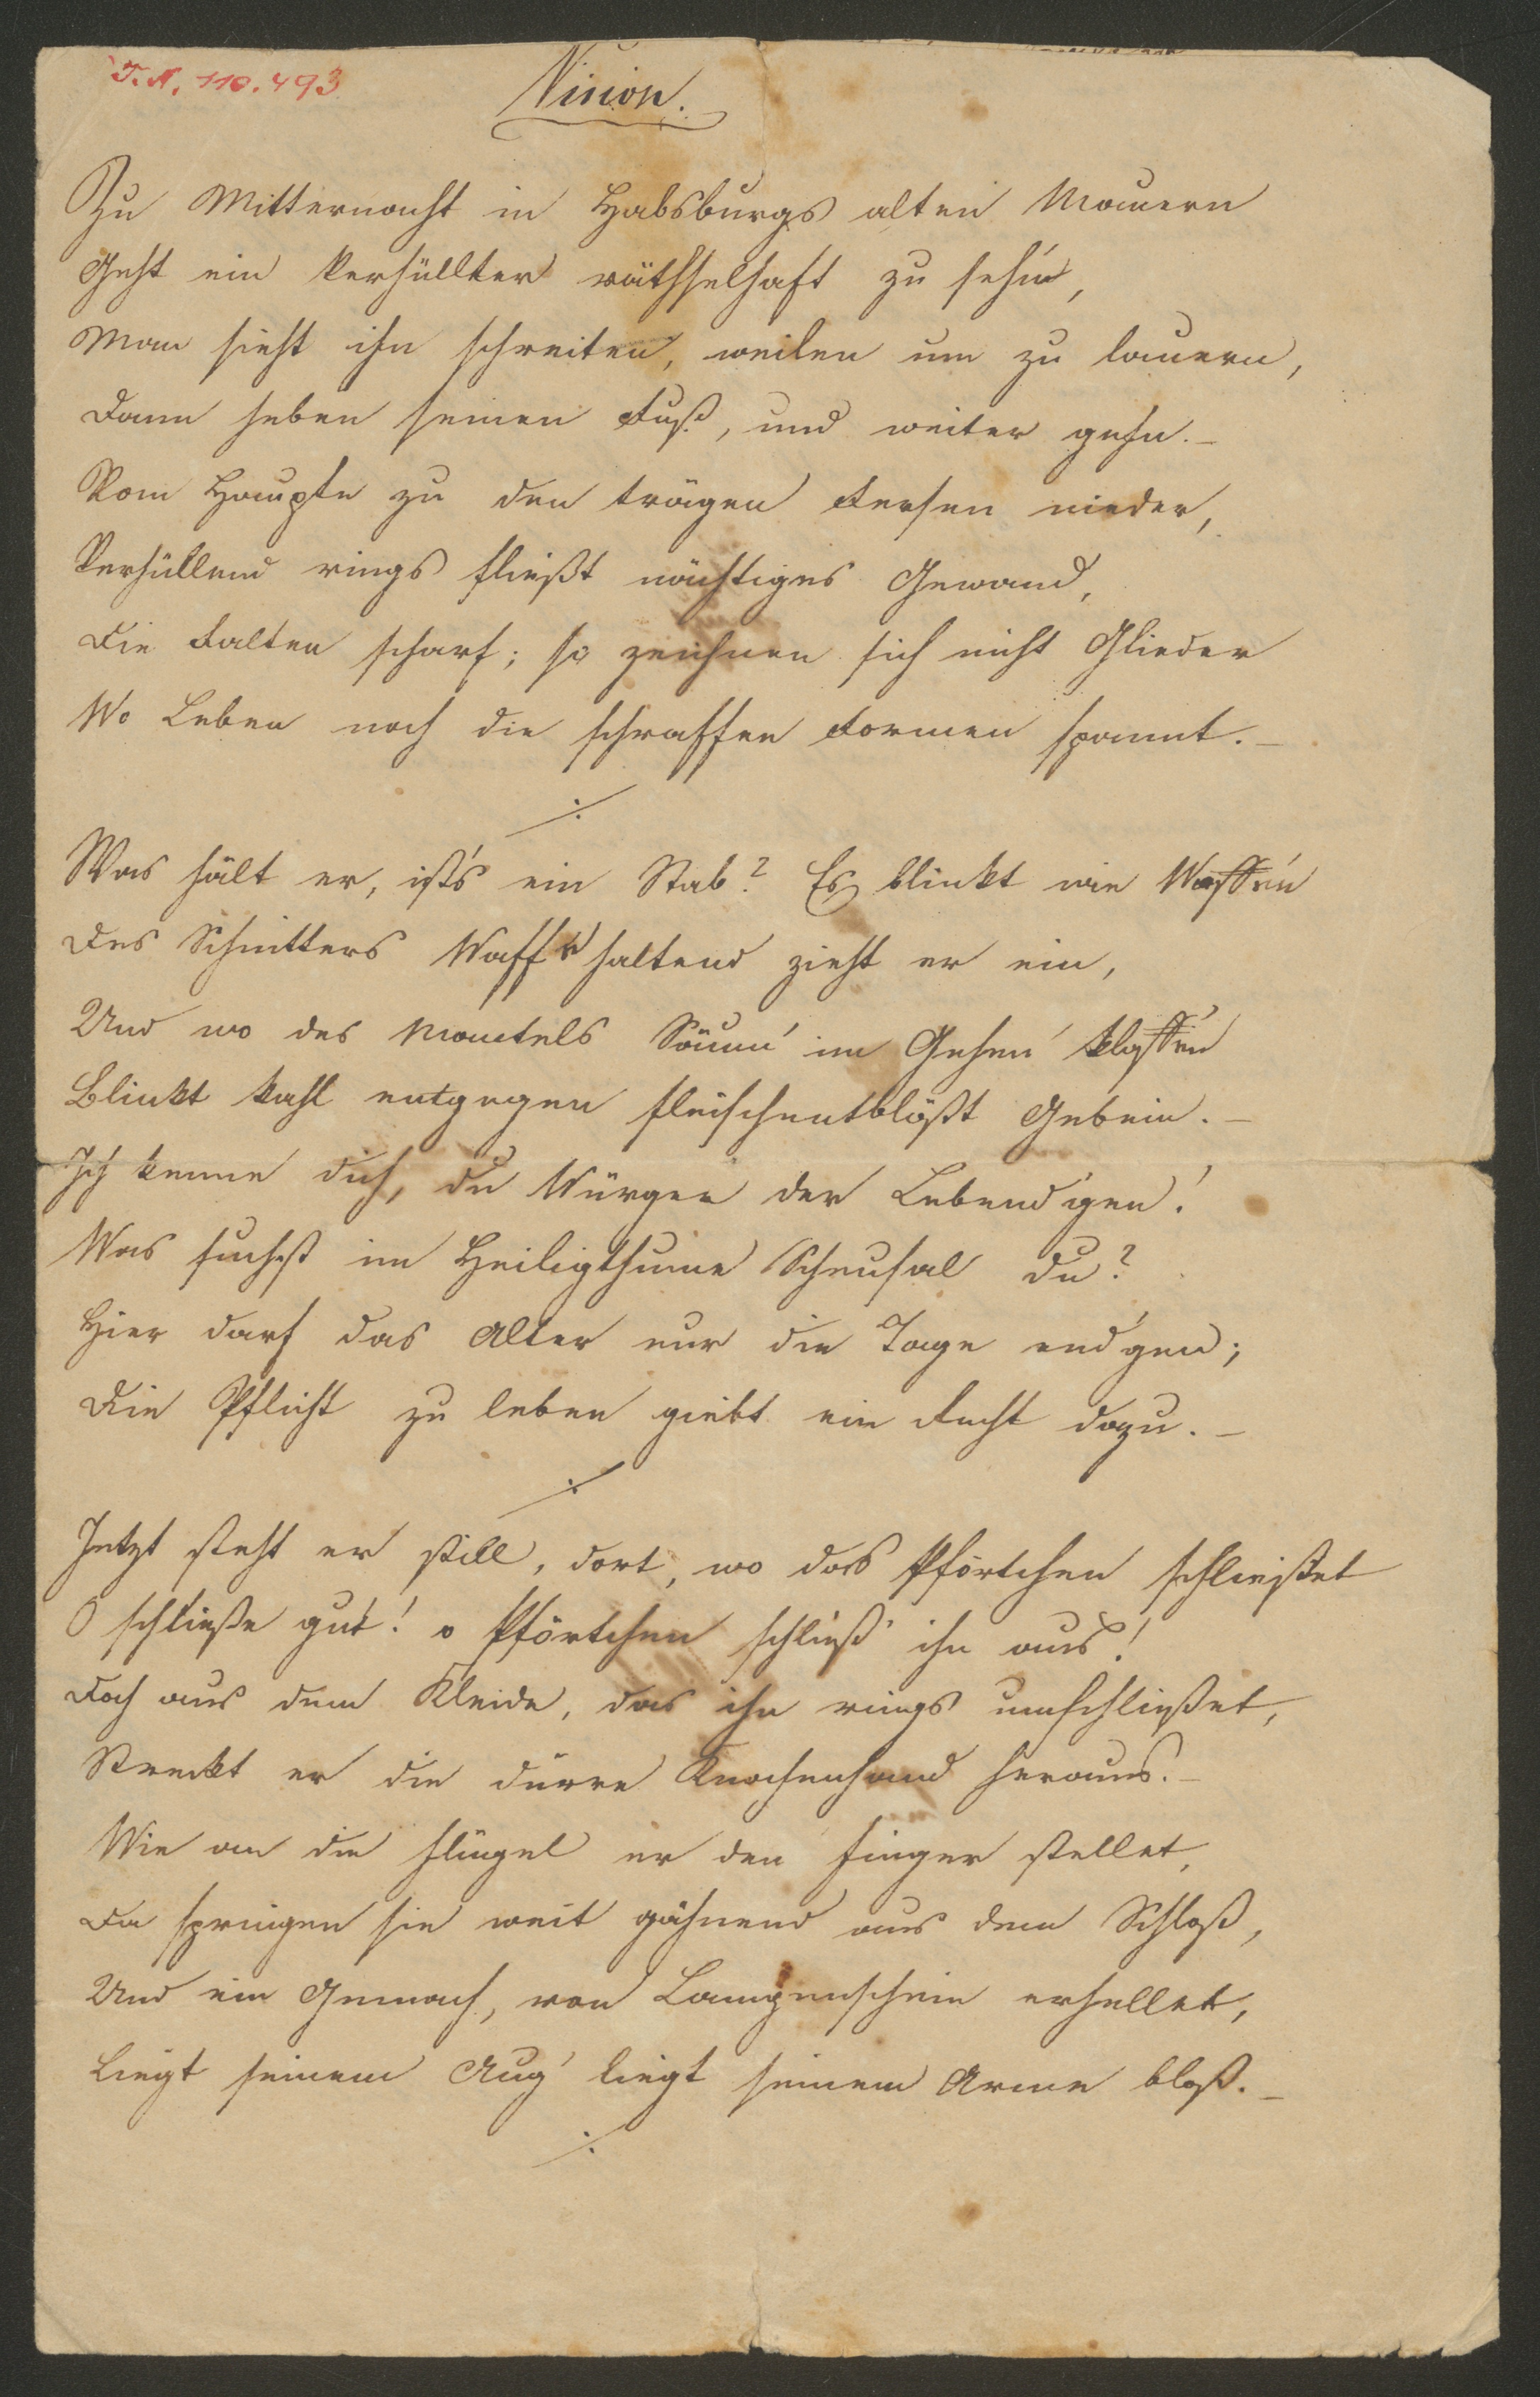 J. N. 110.493
Vision.
Zu Mitternacht in Habsburgs alten Mauern
Geht ein Verhüllter räthselhaft zu sehn,
Man sieht ihn schreiten, weilen um zu lauern,
Dann heben seinen Fuß, und weiter gehn. –
Vom Haupte zu den trägen Fersen nieder,
Verhüllend rings fließt nächtiges Gewand,
Die Falten scharf; so zeichnen sich nicht Glieder
Wo Leben noch die schraffen Formen spannt. –
Was hält er, ist's ein Stab? Es blinkt wie Waffen
Des Schnitters Waff' haltend zieht er ein,
Und wo des Mantels Säum' im Gehen klaffen
Blinkt kahl entgegen fleischentblößt Gebein. –
Ich kenne dich, du Würger der Lebend'gen!
Was suchst im Heiligthume Scheusal du?
Hier darf das Alter nur die Tage end'gen;
Die Pflicht zu leben giebt ein Recht dazu. –
Jetzt steht er still, dort, wo das Pförtchen schließet
O schließe gut! o Pförtchen schließ' ihn aus!
Doch aus dem Kleide, das ihn rings umschließet,
Streckt er die dürre Knochenhand heraus. –
Wie an die Flügel er den Finger stellet,
Da springen sie weit gähnend aus dem Schloß,
Und ein Gemach, von Lampenschein erhellet,
Liegt seinem Aug' liegt seinem Arme bloß. –